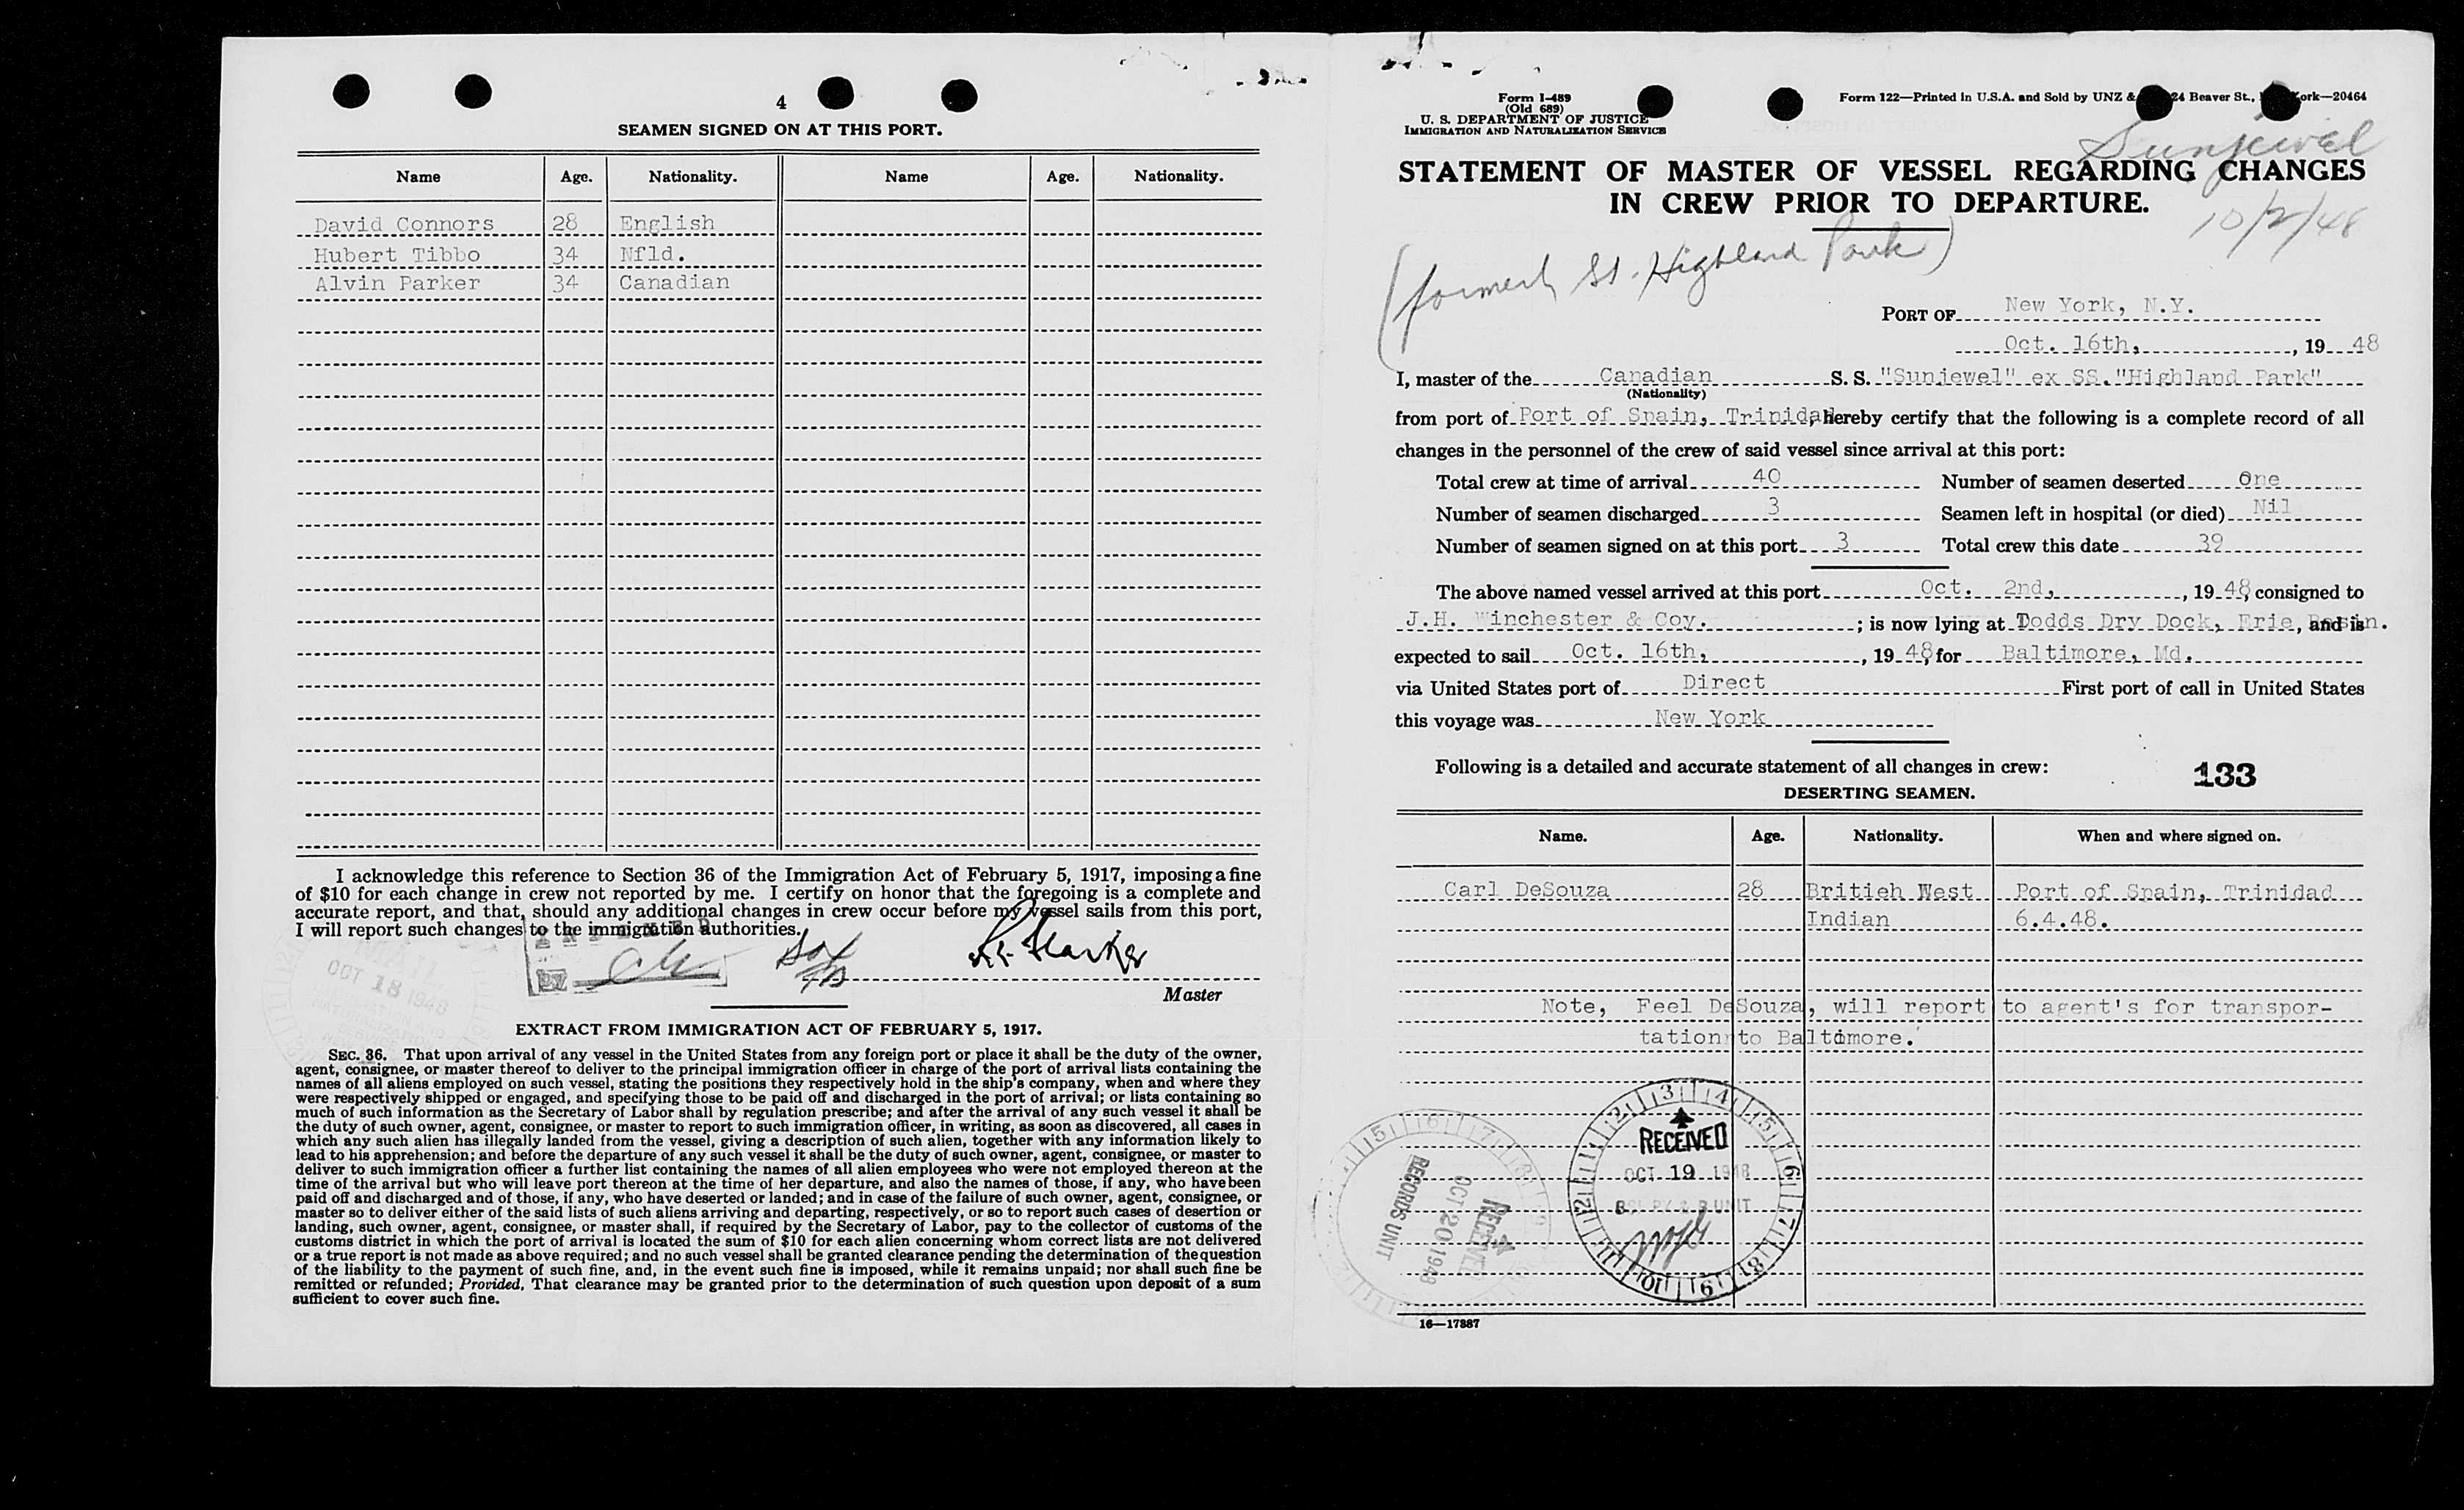 4
SEAMEN SIGNED ON AT THIS PORT.
Name Age. Nationality. Name Age. Nationality.
David Connors 28 English
Hubert Tibbo 34 Nfld.
Alvin Parker 34 Canadian
I acknowledge this reference to Section 36 of the Immigration Act of February 5, 1917, imposing a fine
of $10 for each change in crew not reported by me. I certify on honor that the foregoing is a complete and
accurate report, and that, should any additional changes in crew occur before my vessel sails from this port,
I will report such changes to the immigration authorities.
OCT 18 1948
By
Master
EXTRACT FROM IMMIGRATION ACT OF FEBRUARY 5, 1917.
SEC. 36. That upon arrival of any vessel in the United States from any foreign port or place it shall be the duty of the owner,
agent, consignee, or master thereof to deliver to the principal immigration officer in charge of the port of arrival lists containing the
names of all aliens employed on such vessel, stating the positions they respectively hold in the ship's company, when and where they
were respectively shipped or engaged, and specifying those to be paid off and discharged in the port of arrival; or lists containing so
much of such information as the Secretary of Labor shall by regulation prescribe; and after the arrival of any such vessel it shall be
the duty of such owner, agent, consignee, or master to report to such immigration officer, in writing, as soon as discovered, all cases in
which any such alien has illegally landed from the vessel, giving a description of such alien, together with any information likely to
lead to his apprehension; and before the departure of any such vessel it shall be the duty of such owner, agent, consignee, or master to
deliver to such immigration officer a further list containing the names of all alien employees who were not employed thereon at the
time of the arrival but who will leave port thereon at the time of her departure, and also the names of those, if any, who have been
paid off and discharged and of those, if any, who have deserted or landed; and in case of the failure of such owner, agent, consignee, or
master so to deliver either of the said lists of such aliens arriving and departing, respectively, or so to report such cases of desertion or
landing, such owner, agent, consignee, or master shall, if required by the Secretary of Labor, pay to the collector of customs of the
customs district in which the port of arrival is located the sum of $10 for each alien concerning whom correct lists are not delivered
or a true report is not made as above required; and no such vessel shall be granted clearance pending the determination of the question
of the liability to the payment of such fine, and, in the event such fine is imposed, while it remains unpaid; nor shall such fine be
remitted or refunded; Provided, That clearance may be granted prior to the determination of such question upon deposit of a sum
sufficient to cover such fine.
Form I-489
(Old 689)
U. S. DEPARTMENT OF JUSTICE
IMMIGRATION AND NATURALIZATION SERVICE
Form 122—Printed in U.S.A. and Sold by UNZ & 24 Beaver St., ork—20464
Sunjewel
STATEMENT OF MASTER OF VESSEL REGARDING CHANGES
IN CREW PRIOR TO DEPARTURE.
10/2/48
(formerly SS. Highland Park)
PORT OF New York, N.Y.
Oct. 16th, , 19 48
I, master of the Canadian S. S. "Sunjewel" ex SS."Highland Park"
(Nationality)
from port of Port of Spain, Trinidad, hereby certify that the following is a complete record of all
changes in the personnel of the crew of said vessel since arrival at this port:
Total crew at time of arrival 40 Number of seamen deserted One
Number of seamen discharged 3 Seamen left in hospital (or died) Nil
Number of seamen signed on at this port 3 Total crew this date 39
The above named vessel arrived at this port Oct. 2nd, , 19 48, consigned to
J.H. Winchester & Coy. ; is now lying at Dodds Dry Dock, Erie, Basin. and is
expected to sail Oct. 16th, , 19 48, for Baltimore, Md.
via United States port of Direct First port of call in United States
this voyage was New York
Following is a detailed and accurate statement of all changes in crew:
133
DESERTING SEAMEN.
Name. Age. Nationality. When and where signed on.
Carl DeSouza 28 Britieh West Port of Spain, Trinidad
Indian 6.4.48.
Note, Feel DeSouza, will report to agent's for transpor-
tation to Baltimore.
RECEIVED
OCT 19 1948
RECEIVED
OCT 20 1948
RECORDS UNIT
16—17887